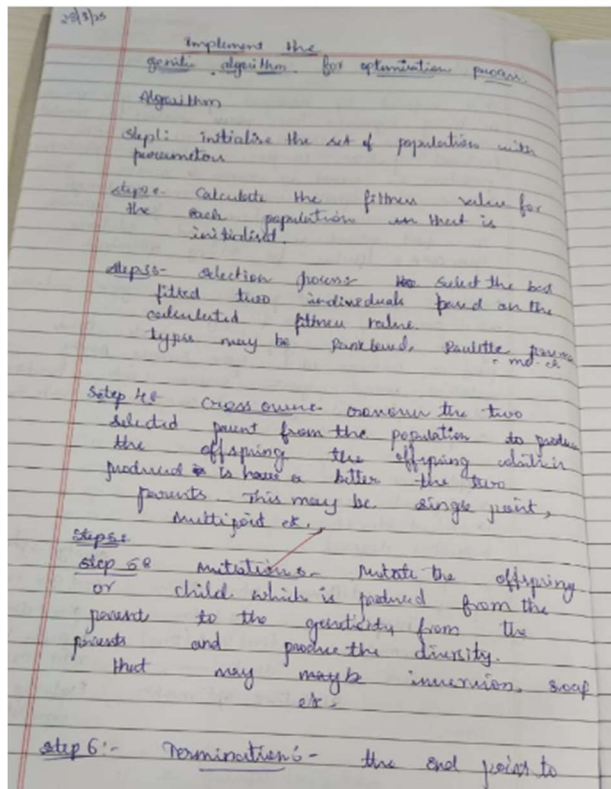 28/3/25
Implement the
genetic algorithm for optimisation process.
Algorithm
step1: initialise the set of population with
parameters
step2:- Calculate the fittness value for
the each population in that is
initialised.
step3:- selection process select the best
fitted two individuals based on the
calculated fittness value.
type may be Rank based, Roulette
Step 4:- Cross over crossover the two
selected parent from the population to produce
the offspring the offspring
produced is have a better the two
parents this may be single point,
multipoint etc.,
Step5:
step 5:- mutation:- mutate the offspring
or child which is produced from the
parent to the from the
parents and produce the diversity.
that may maybe inversion, swap
etc.
step 6:- Termination:- the end point to